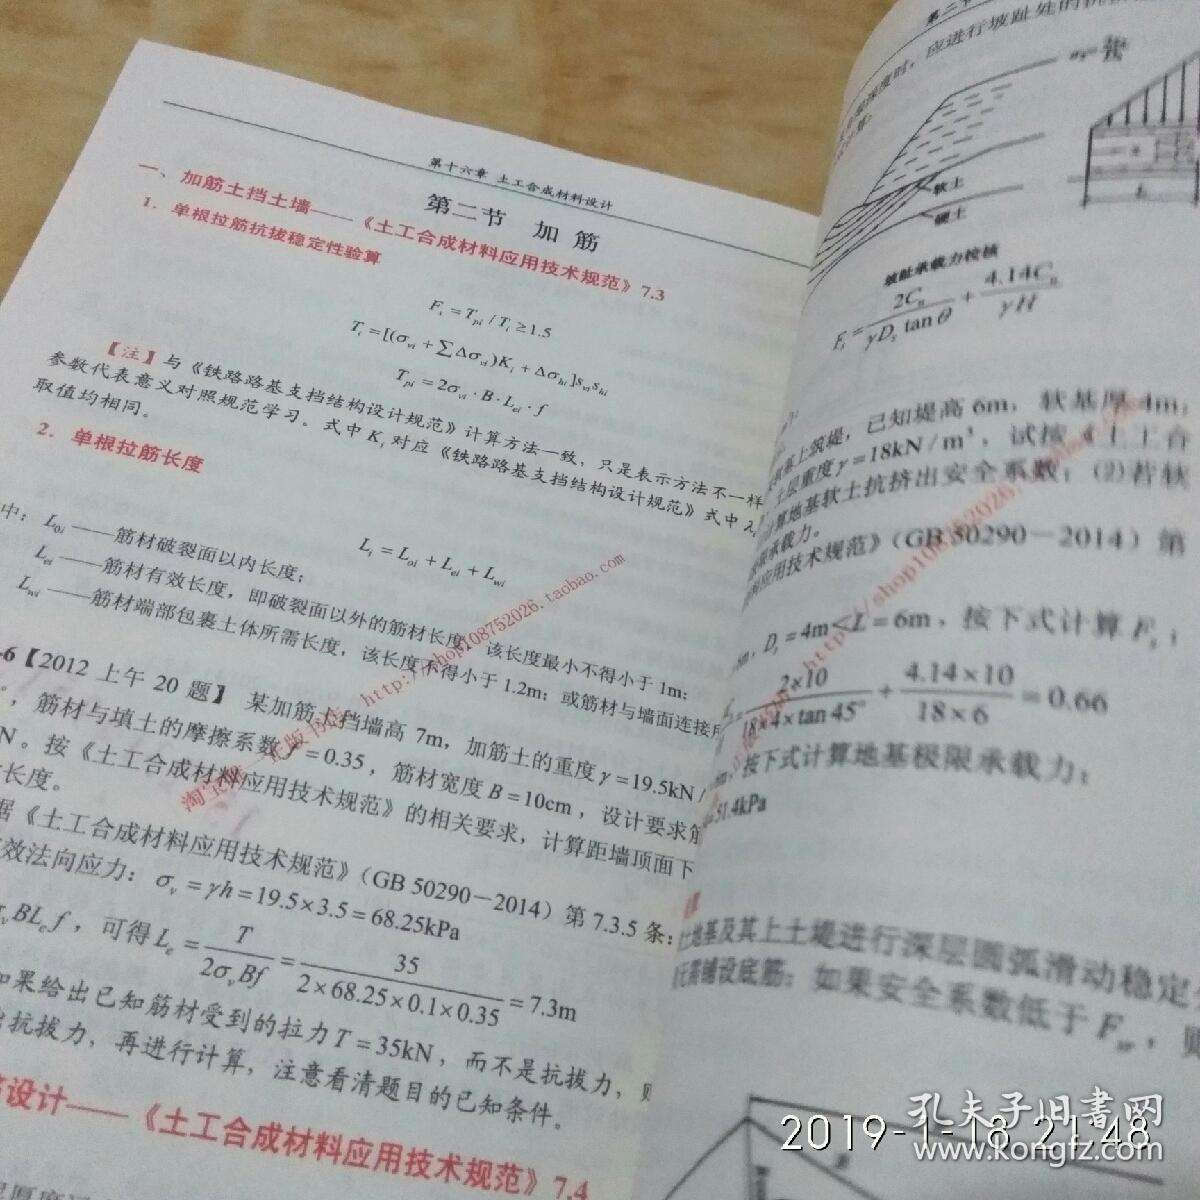 第十六章 土工合成材料设计
第二节 加 筋
一、加筋土挡土墙——《土工合成材料应用技术规范》7.3
1. 单根拉筋抗拔稳定性验算
F_s = T_pi / T_i ≥ 1.5
T_i = [(σ_vi + ∑Δσ_vi)K_i + Δσ_hi]s_vi s_hi
T_pi = 2σ_vi · B · L_ei · f
【注】与《铁路路基支挡结构设计规范》计算方法一致，只是表示方法不一样
参数代表意义对照规范学习。式中K_i对应《铁路路基支挡结构设计规范》式中λ_i
取值均相同。
2. 单根拉筋长度
L_i = L_0i + L_ei + L_wi
中：L_0i ——筋材破裂面以内长度；
L_ei ——筋材有效长度，即破裂面以外的筋材长度，该长度最小不得小于1m；
L_wi ——筋材端部包裹土体所需长度，该长度不得小于1.2m；或筋材与墙面连接
-6【2012上午20题】 某加筋土挡墙高7m，加筋土的重度γ=19.5kN/
，筋材与填土的摩擦系数f=0.35，筋材宽度B=10cm，设计要求
N。按《土工合成材料应用技术规范》的相关要求，计算距墙顶面下
长度。
据《土工合成材料应用技术规范》（GB 50290－2014）第7.3.5条：
效法向应力：σ_v = γh = 19.5×3.5 = 68.25kPa
σ_v BL_e f，可得L_e = T / 2σ_v Bf = 35 / 2×68.25×0.1×0.35 = 7.3m
如果给出已知筋材受到的拉力T=35kN，而不是抗拔力，则
抗拔力，再进行计算，注意看清题目的已知条件。
设计——《土工合成材料应用技术规范》7.4
http://shop108752026.taobao.com
第二节
应进行坡趾处的
软土
硬土
坡趾承载力校核
F_s = 2C_u / γD_s tanθ + 4.14C_u / γH
基上筑堤，已知堤高6m，软基厚4m，
土层重度γ=18kN/m³，试按《土工合
计算地基软土抗挤出安全系数；(2)若软
承载力。
应用技术规范》（GB 50290－2014）第
D_s=4m<L=6m，按下式计算F_s：
2×10 / 18×4×tan45° + 4.14×10 / 18×6 = 0.66
按下式计算地基极限承载力：
=51.4kPa
地基及其上土堤进行深层圆弧滑动稳定
铺设底筋；如果安全系数低于F_sr，则
2019-1-18 21:48
孔夫子旧书网
www.kongfz.com